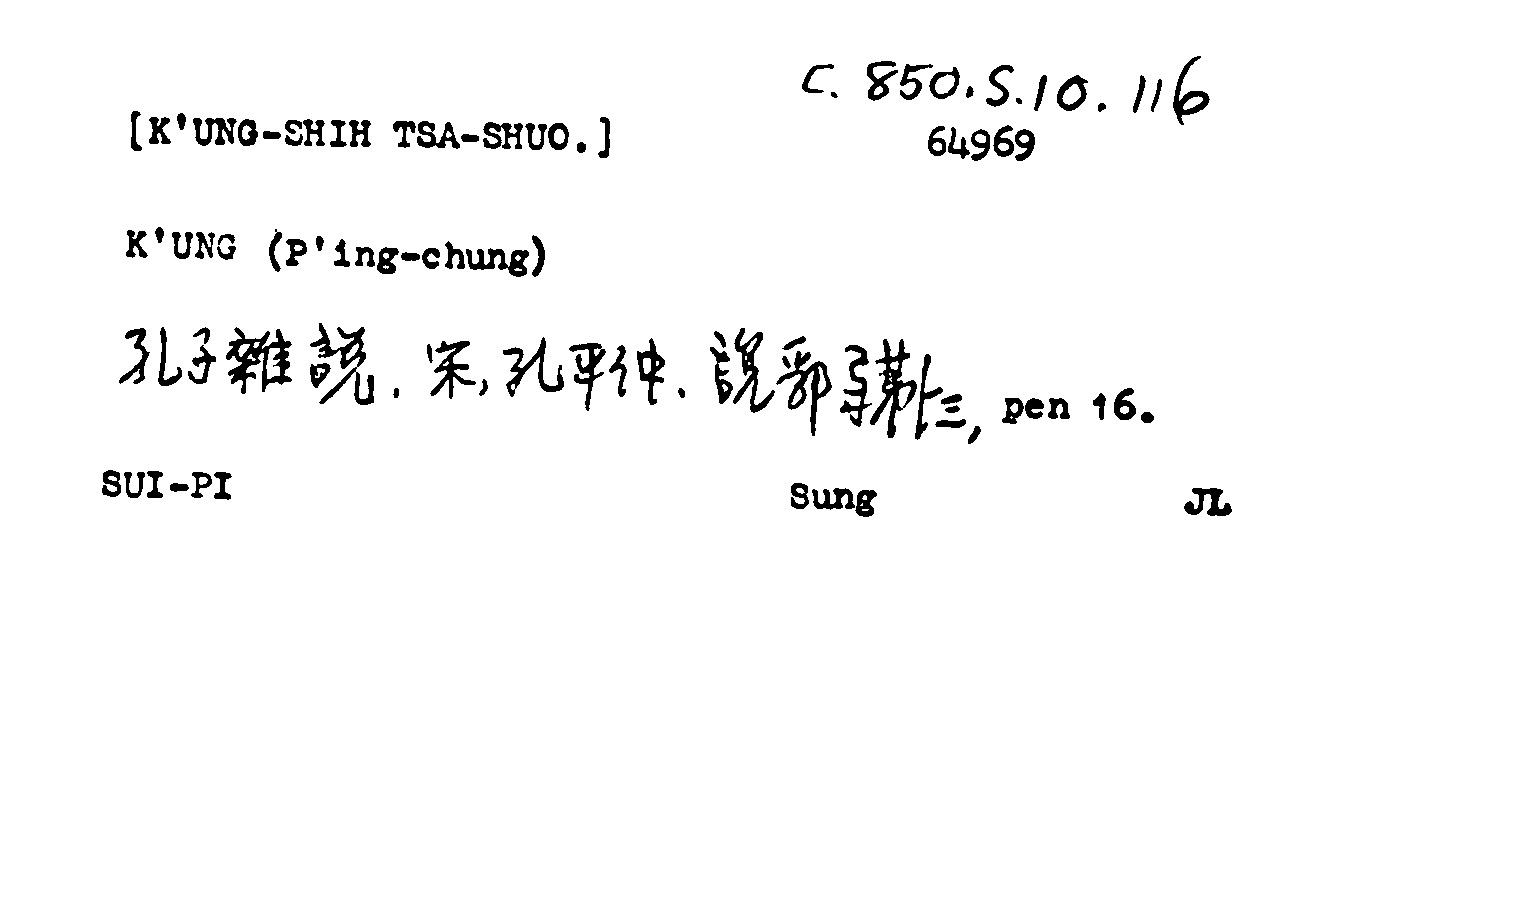 C. 850.S.10.116
[K'UNG-SHIH TSA-SHUO.]
64969
K'UNG (P'ing-chung)
孔子雜說. 宋, 孔平仲. 說郛 第十三, pen 16.
SUI-PI Sung JL